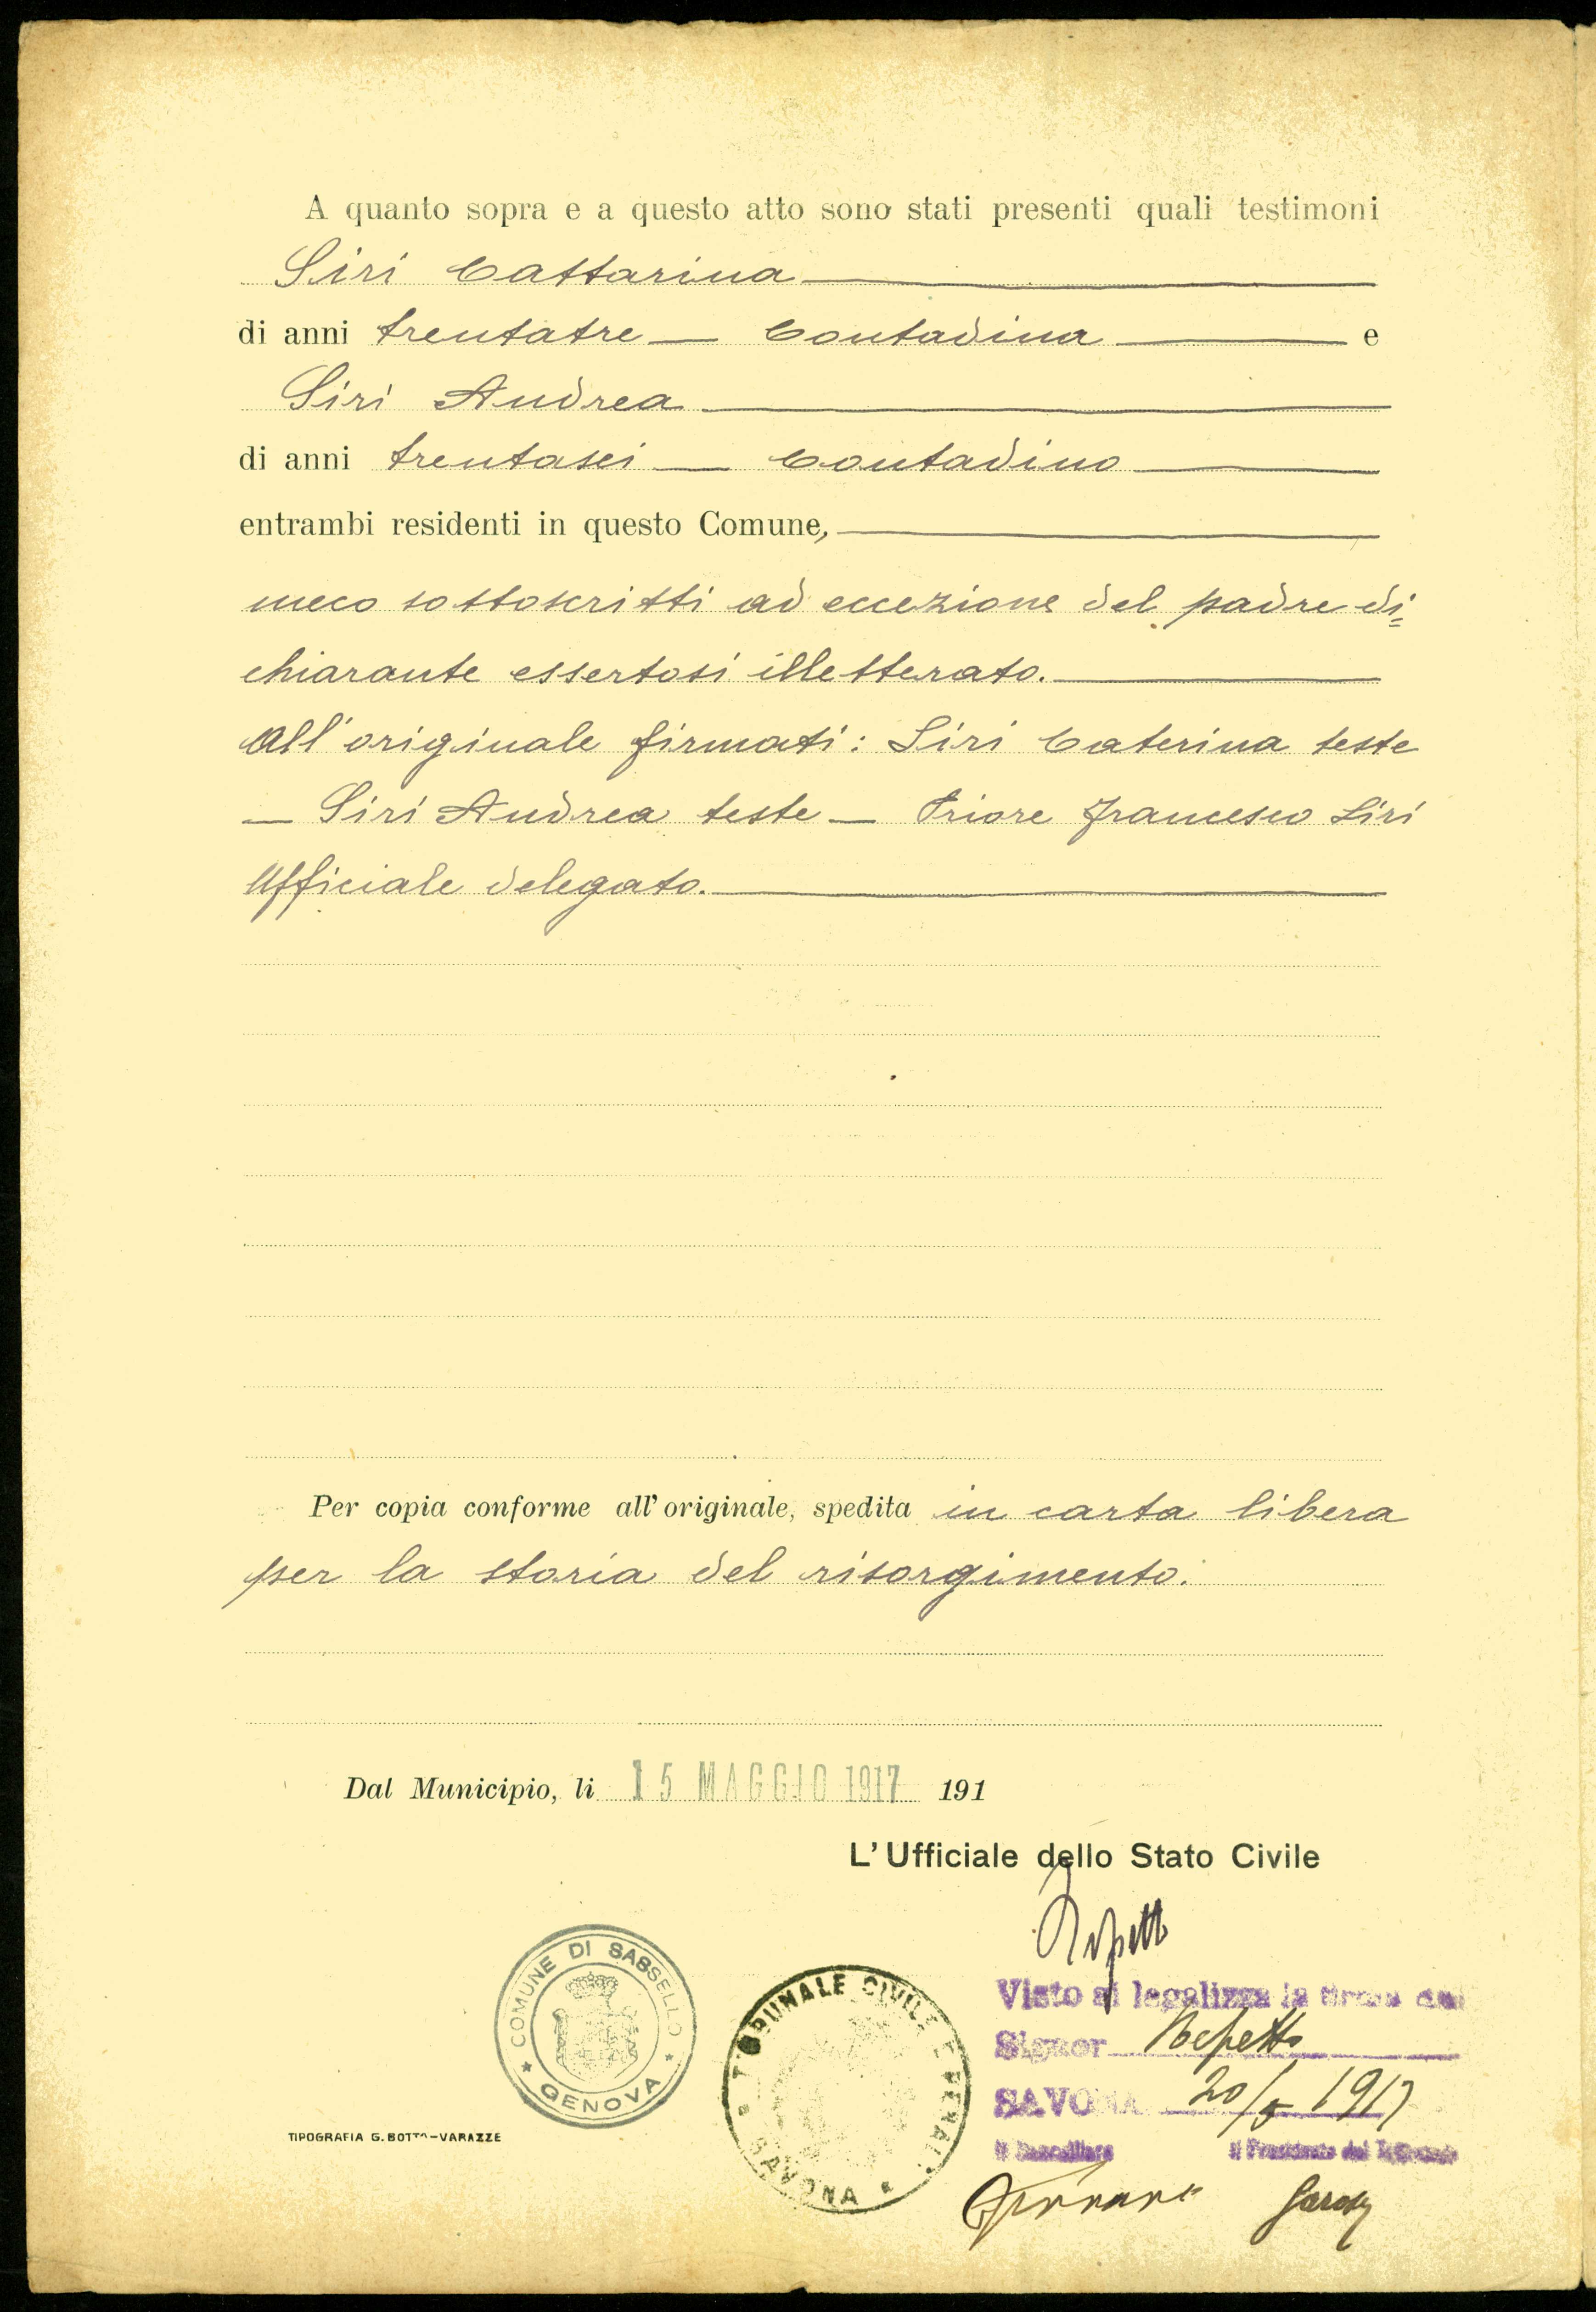 A quanto sopra e a questo atto sono stati presenti quali testimoni
Siri Cattarina
di anni trentatre — Contadina e
Siri Andrea
di anni trentasei — Contadino
entrambi residenti in questo Comune,
meco sottoscritti ad eccezione del padre di=
chiarante essertosi illetterato.
All'originale firmati: Siri Caterina teste
— Siri Andrea teste — Priore Francesco Siri
Ufficiale delegato.
Per copia conforme all'originale, spedita in carta libera
per la storia del risorgimento.
Dal Municipio, li 15 MAGGIO 1917 191
L'Ufficiale dello Stato Civile
Repetto
COMUNE DI SASSELLO
GENOVA
TRIBUNALE CIVILE E PENALE
SAVONA
Visto si legalizza la firma del
Signor Repetto
SAVONA 20/5 1917
Il Cancelliere Il Presidente del Tribunale
TIPOGRAFIA G. BOTTA-VARAZZE